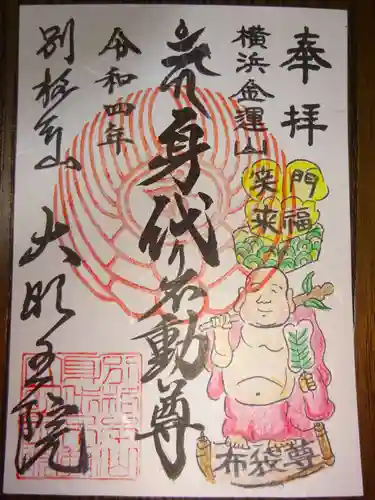 奉拝
横浜金運山
笑門
来福
身代り不動尊
令和四年
別格本山
大明王院
布袋尊